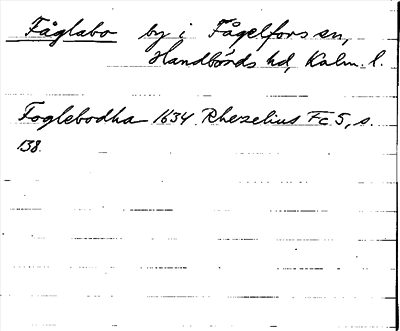 Fåglabo by i Fågelfors sn,
Handbörds hd, Kalm. l.
Foglebodha 1634 Rhezelius Fc 5, s.
138.